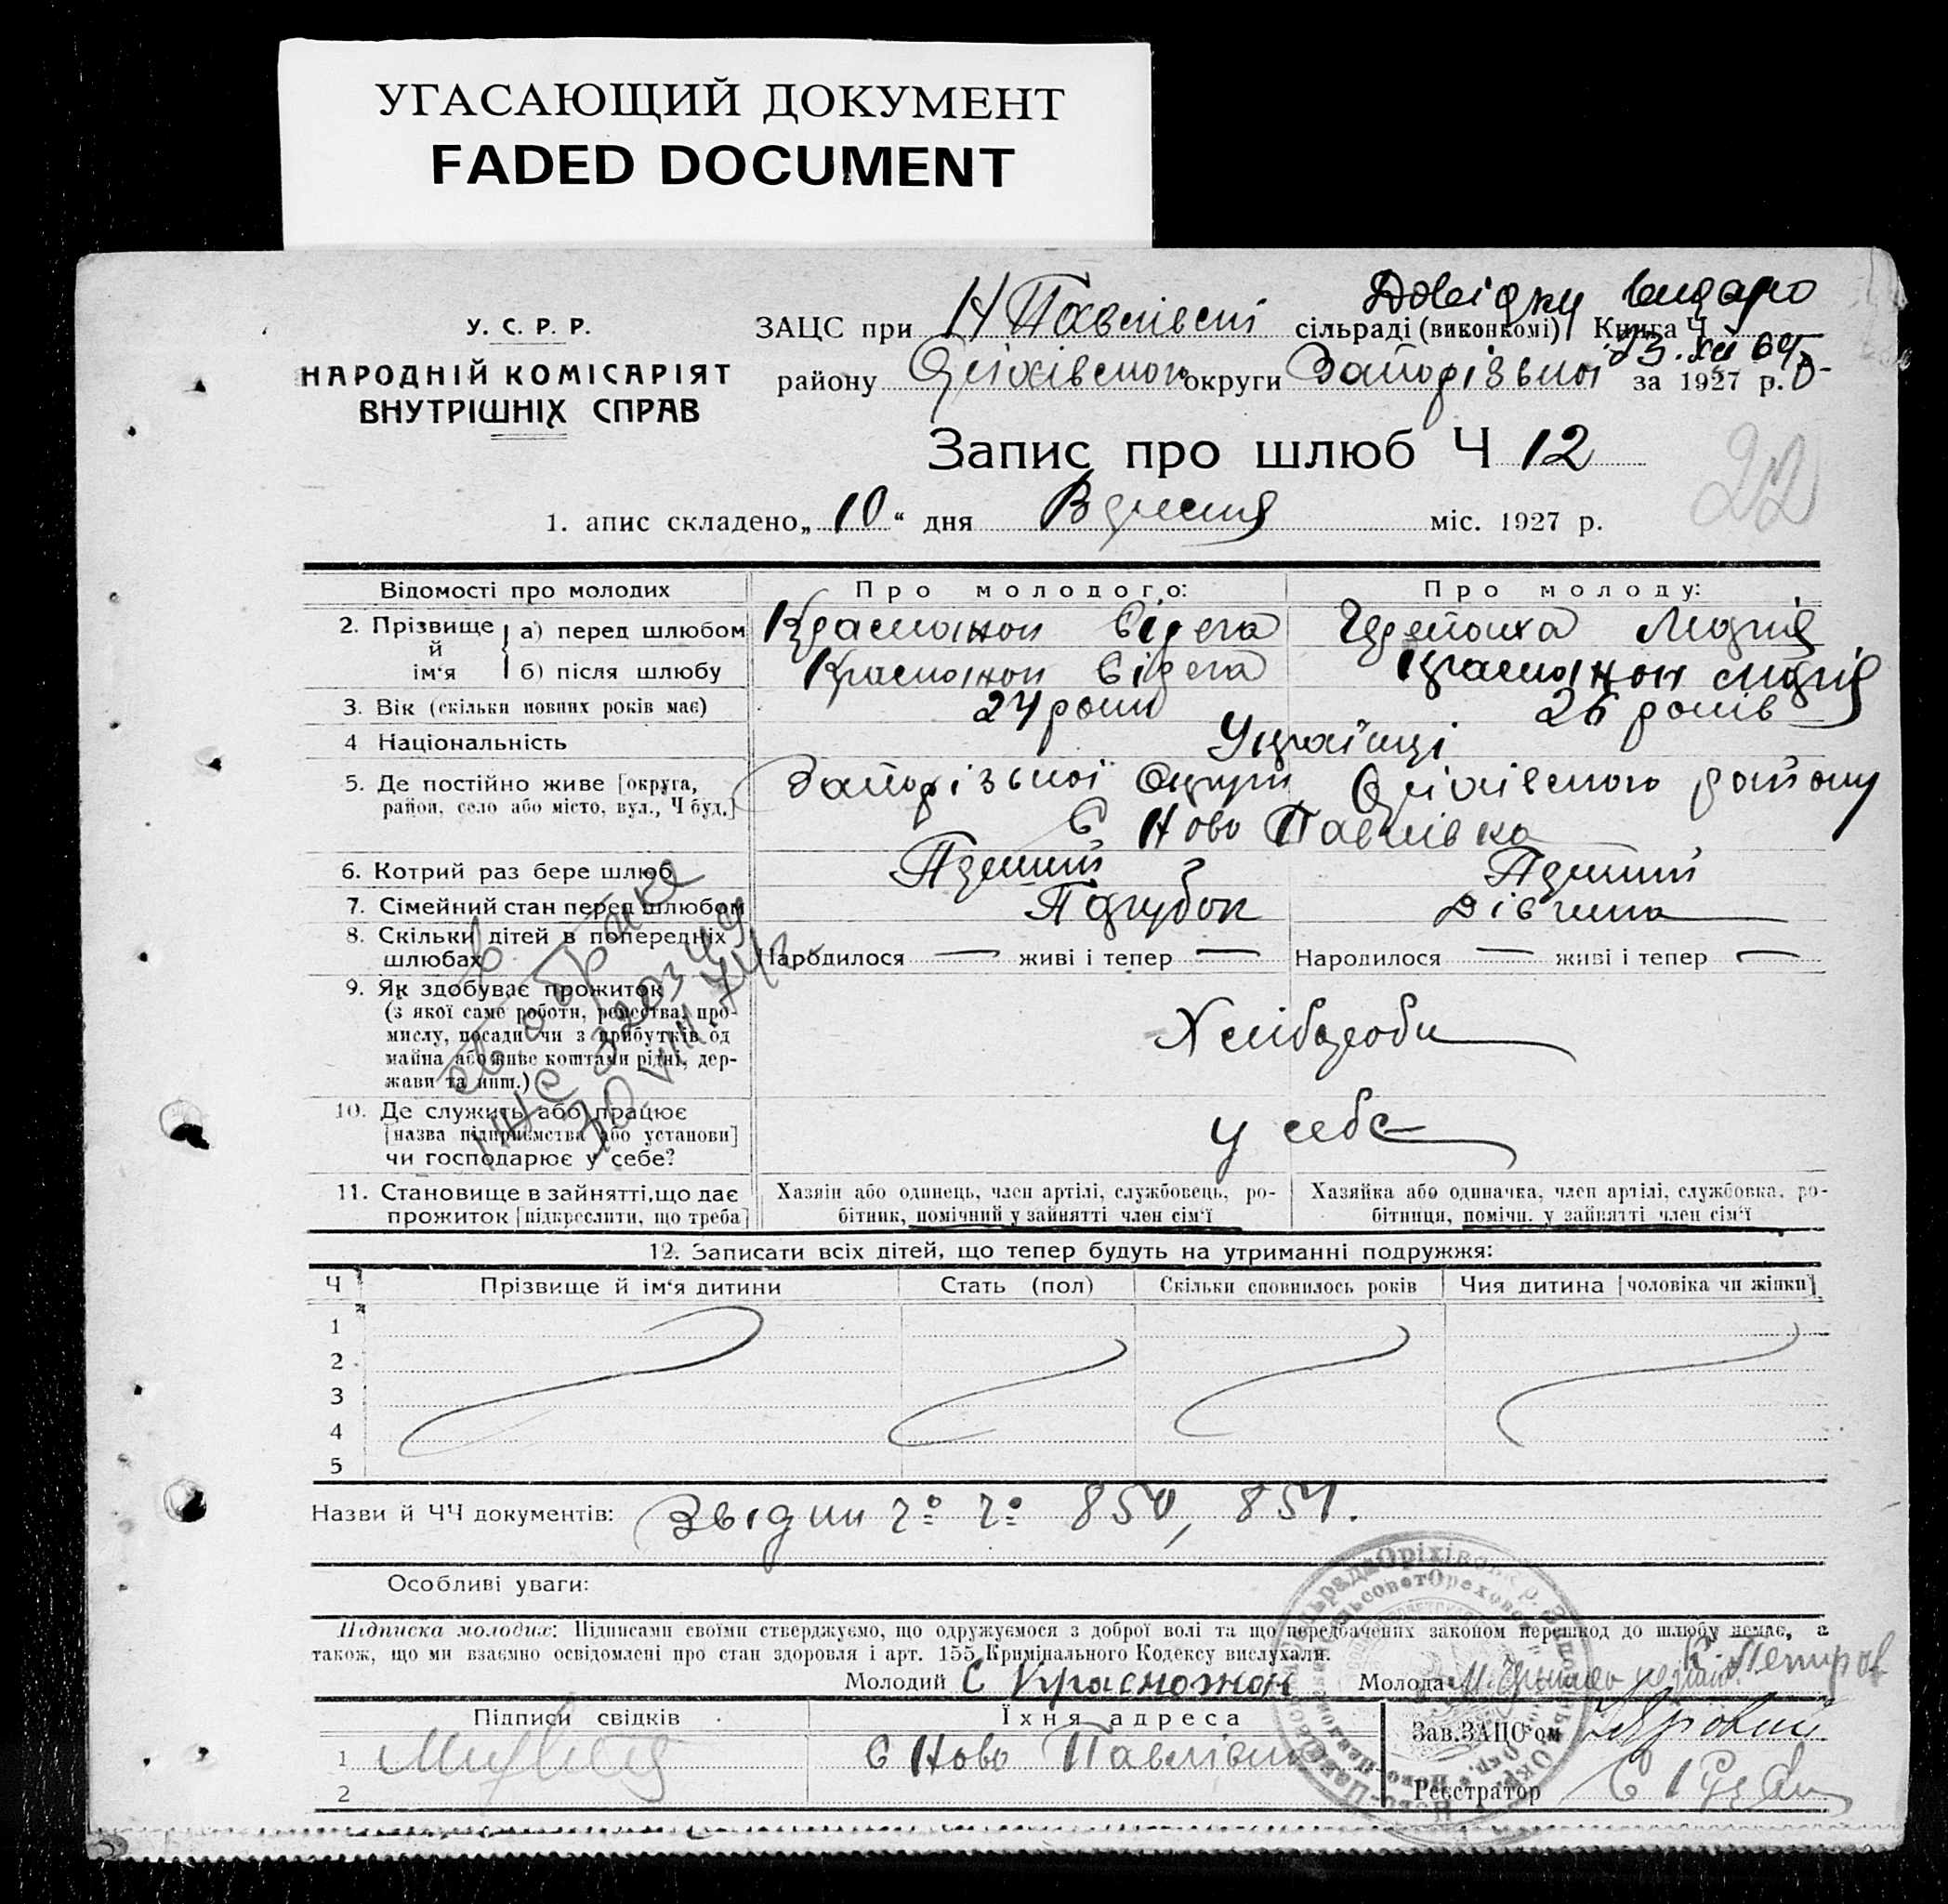 УГАСАЮЩИЙ ДОКУМЕНТ
FADED DOCUMENT
Довідку видано
23.XII 64р
У. С. Р. Р.
НАРОДНІЙ КОМІСАРІЯТ
ВНУТРІШНІХ СПРАВ
ЗАЦС при Н Павлівскі сільраді (виконкомі) Книга Ч
району Оріхівського округи Запорізької за 1927 р.
Запис про шлюб Ч 12
22
1. апис складено „10“ дня Вересня міс. 1927 р.
Відомості про молодих Про молодого: Про молоду:
2. Прізвище й ім'я а) перед шлюбом Красножон Лидія
б) після шлюбу Красножон Красножон Лидія
3. Вік (скільки повних років має) 24 роки 26 років
4 Національність Українці
5. Де постійно живе [округа, Запорізької Округи Оріхівского району
район, село або місто, вул., Ч буд.] С Ново Павлівка
6. Котрий раз бере шлюб Перший Перший
7. Сімейний стан перед шлюбом Парубок Дівчина
8. Скільки дітей в попередніх
шлюбах Народилося — живі і тепер — Народилося — живі і тепер —
9. Як здобуває прожиток
(з якої саме роботи, ремества, про-
мислу, посади чи з прибутків од
майна або живе коштами рідні, дер-
жави та инш.) Хлібороби
10. Де служить або працює
[назва підприємства або установи]
чи господарює у себе? у себе
св о браке
30 VIII 74
11. Становище в зайнятті, що дає Хазяїн або одинець, член артілі, службовець, ро- Хазяйка або одиначка, член артілі, службовка, ро-
прожиток [підкреслити, що треба] бітник, помічний у зайнятті член сім'ї бітниця, помічн. у зайнятті член сім'ї
12. Записати всіх дітей, що тепер будуть на утриманні подружжя:
Ч Прізвище й ім'я дитини Стать (пол) Скільки сповнилось років Чия дитина [чоловіка чи жінки]
1
2
3
4
5
Назви й ЧЧ документів: Звідки ч° ч° 850, 851.
Особливі уваги:
Підписка молодих: Підписами своїми стверджуємо, що одружуємося з доброї волі та що передбачених законом перешкод до шлюбу немає, а
також, що ми взаємно освідомлені про стан здоровля і арт. 155 Кримінального Кодексу вислухали.
Молодий С Красножон Молода
Підписи свідків Їхня адреса Зав. ЗАЦС'ом Яровий
1 С Ново Павлівка
2 Реєстратор